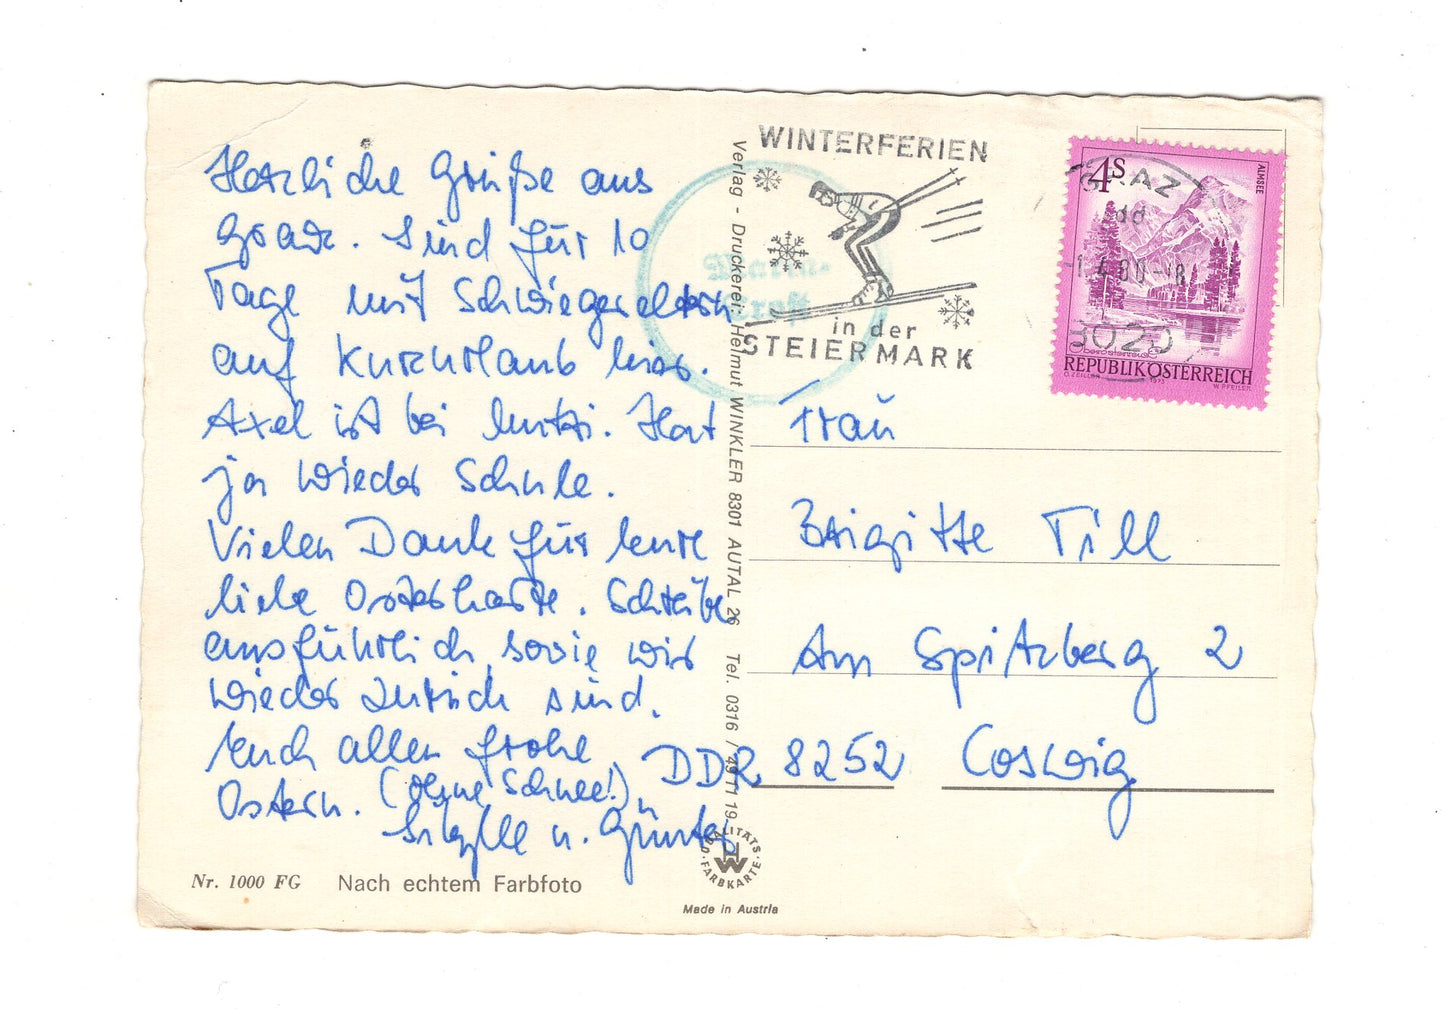 Herzliche Grüße aus
Graz. Sind für 10
Tage mit Schwiegereltern
auf Kurzurlaub hier.
Axel ist bei Mutti. Hat
ja wieder Schule.
Vielen Dank für Eure
liebe Osterkarte. Schreibe
ausführlich, sowie wir
wieder zurück sind.
Euch allen frohe
Ostern. (ohne Schnee!)
Sibylle u. Günter
Nr. 1000 FG Nach echtem Farbfoto
Verlag - Druckerei: Helmut WINKLER 8301 AUTAL 26 Tel. 0316 / 49 11 19
QUALITÄTS
FARBKARTE
W
Made in Austria
WINTERFERIEN
in der
STEIERMARK
4S
ALMSEE
REPUBLIK ÖSTERREICH
O. ZEILLER 1973 W. PFEILER
GRAZ
8020
Frau
Brigitte Till
Am Spitzberg 2
DDR 8252 Coswig